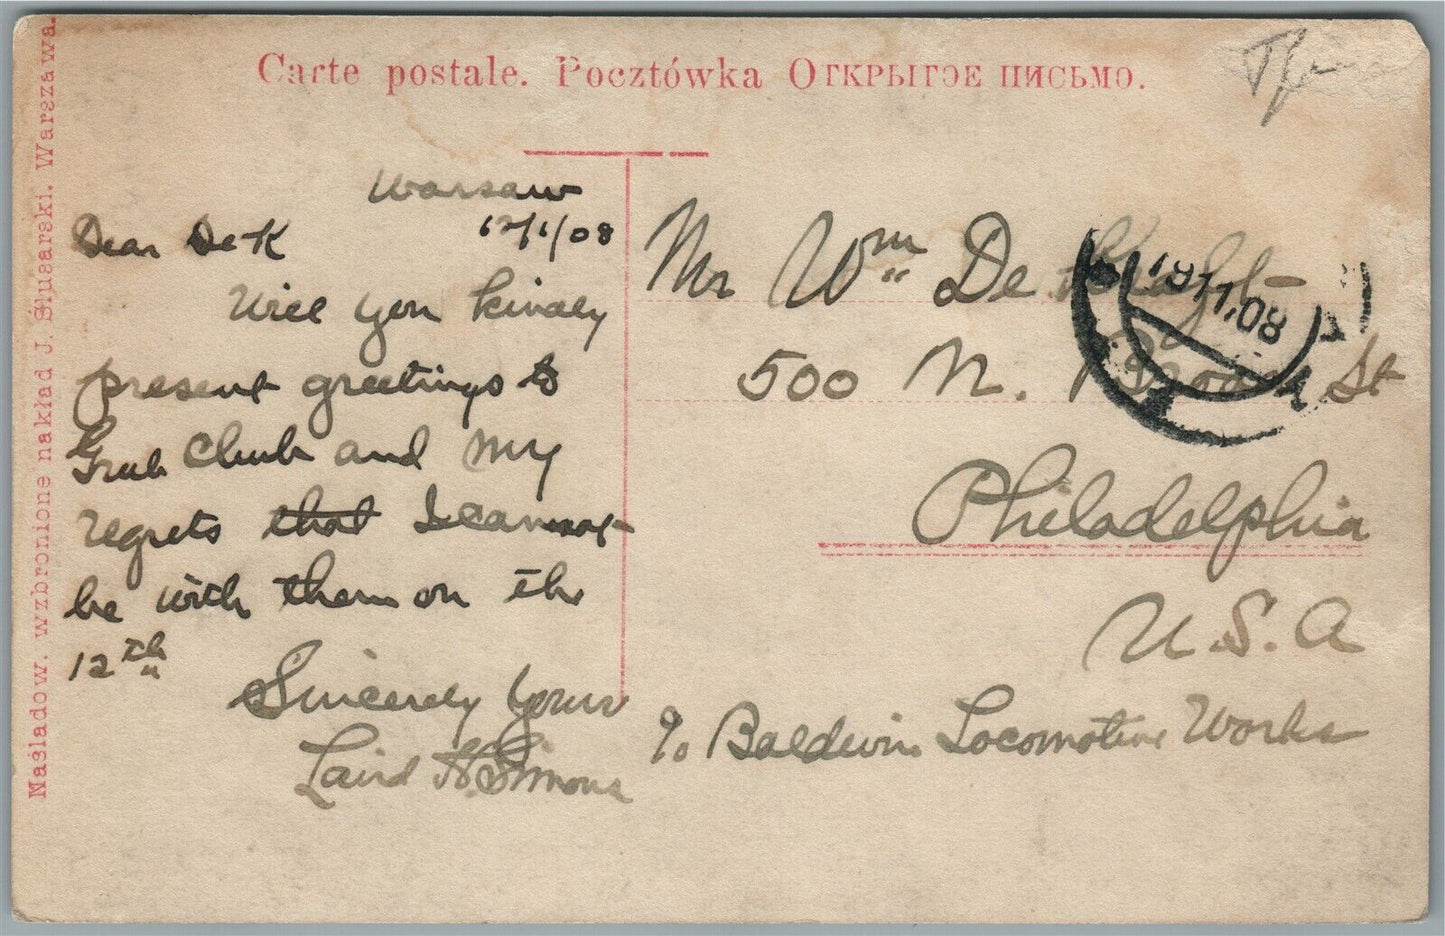 Carte postale. Pocztówka Открытое письмо.
Naśladow. wzbronione nakład J. Ślusarski. Warszawa.
Warsaw
12/1/08
Dear DeK
Will you kindly
present greetings to
Grub Club and my
regrets that I cannot
be with them on the
12th
Sincerely Yours
Laird H. Simons
Mr Wm De
500 N. Broad St
Philadelphia
U.S.A
c/o Baldwin Locomotive Works
11.08